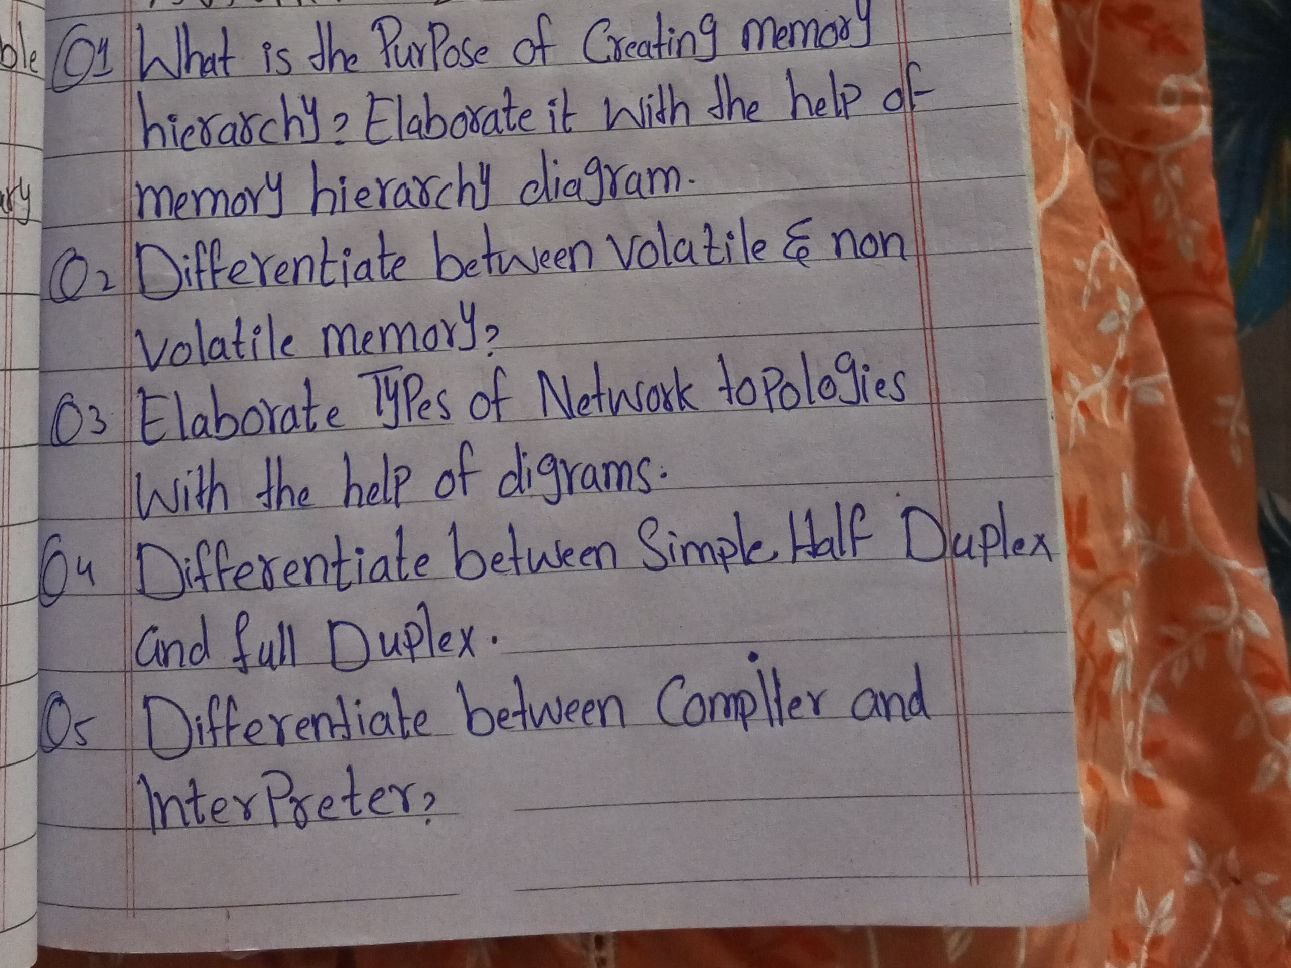 ble
Q1 What is the PurPose of Creating memory
hierarchy? Elaborate it With the help of
memory hierarchy diagram.
Q2 Differentiate between Volatile & non
Volatile memory?
Q3 Elaborate TyPes of Network toPologies
With the help of digrams.
Q4 Differentiate between Simple, Half Duplex
and full Duplex.
Q5 Differentiate between Compiler and
InterPreter?